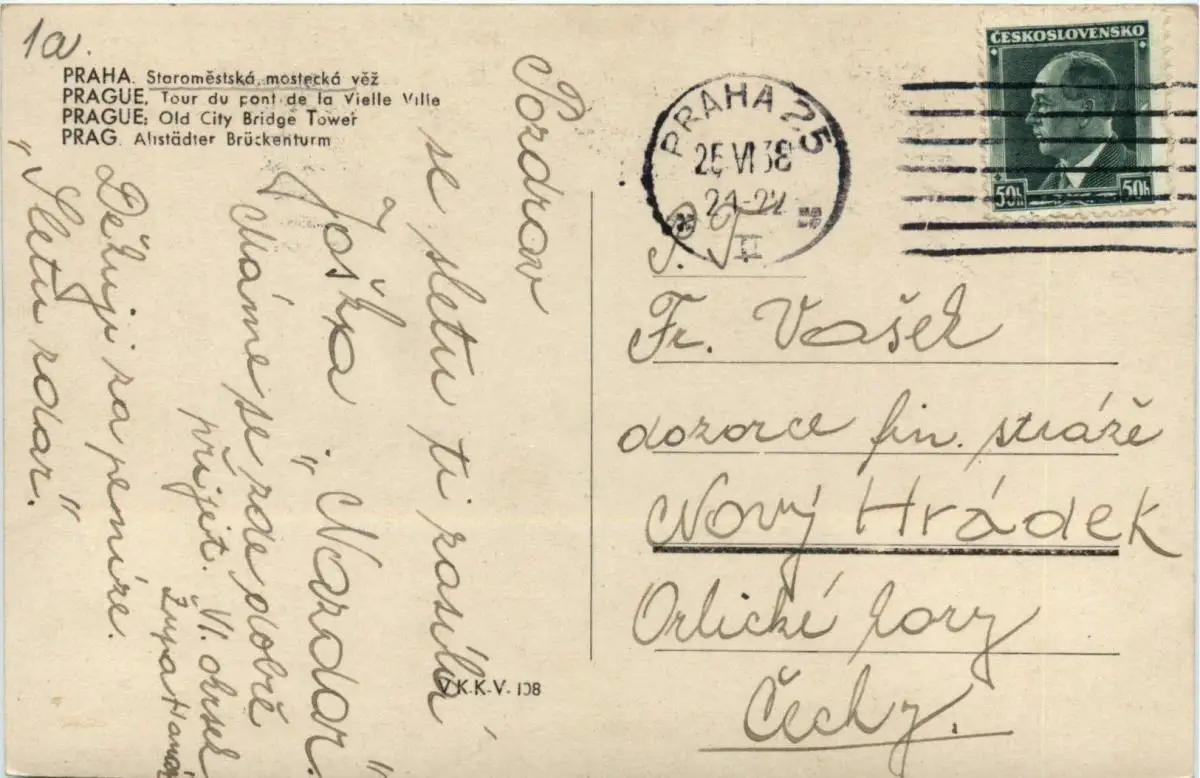 1a.
PRAHA. Staroměstská mostecká věž
PRAGUE. Tour du pont de la Vielle Ville
PRAGUE: Old City Bridge Tower
PRAG. Altstädter Brückenturm
Pozdrav
se sletu ti zasílá
Jožka. „Nazdar."
Máme se zde dobře
přijet. VI. okrsek
Župa Hanác
Děkuji za peníze.
„Sletu zdar."
V.K.K.V. 108
PRAHA 25
25 VI 38
21-22
II
ČESKOSLOVENSKO
50h 50h
Fr. Vašek
dozorce fin. stráže
Nový Hrádek
Orlické hory
Čechy.